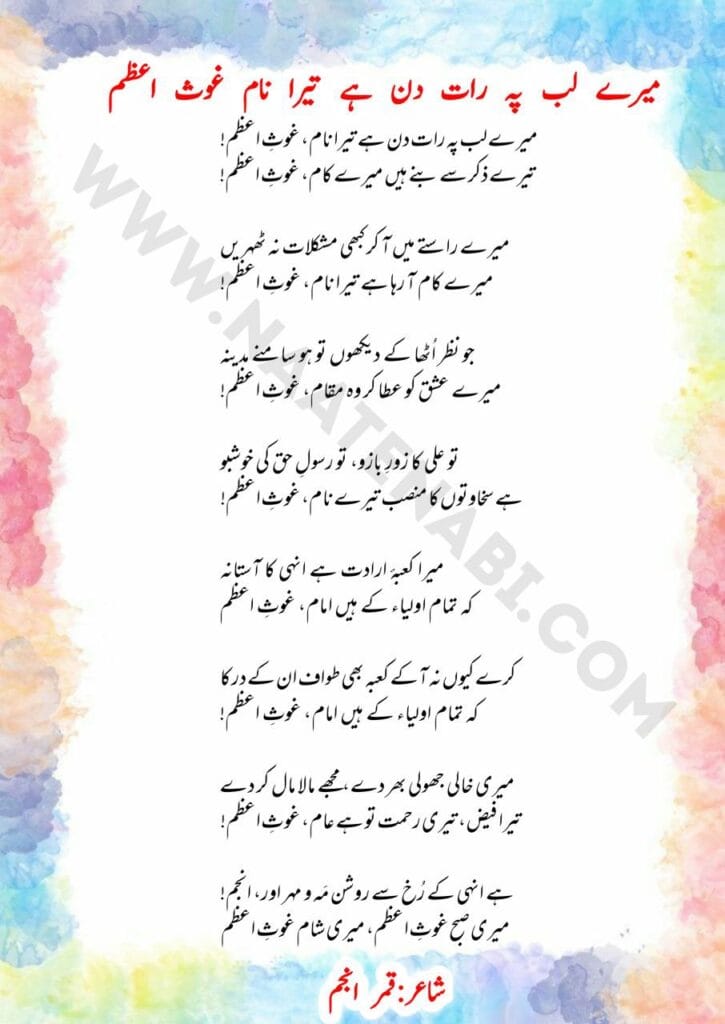 میرے لب پہ رات دن ہے تیرا نام غوث اعظم
میرے لب پہ رات دن ہے تیرا نام، غوثِ اعظم!
تیرے ذکر سے بنے ہیں میرے کام، غوثِ اعظم!
میرے راستے میں آ کر کبھی مشکلات نہ ٹھہریں
میرے کام آ رہا ہے تیرا نام، غوثِ اعظم!
جو نظر اُٹھا کے دیکھوں تو ہو سامنے مدینہ
میرے عشق کو عطا کر وہ مقام، غوثِ اعظم!
تو علی کا زورِ بازو، تو رسولِ حق کی خوشبو
ہے سخاوتوں کا منصب تیرے نام، غوثِ اعظم!
میرا کعبۂ ارادت ہے انہی کا آستانہ
کہ تمام اولیاء کے ہیں امام، غوثِ اعظم
کرے کیوں نہ آ کے کعبہ بھی طواف ان کے در کا
کہ تمام اولیاء کے ہیں امام، غوثِ اعظم!
میری خالی جھولی بھر دے، مجھے مالا مال کر دے
تیرا فیض، تیری رحمت تو ہے عام، غوثِ اعظم!
ہے انہی کے رُخ سے روشن مَہ و مہر اور، انجم!
میری صبح غوثِ اعظم، میری شام غوثِ اعظم
شاعر: قمر انجم
WWW.NAATENABI.COM